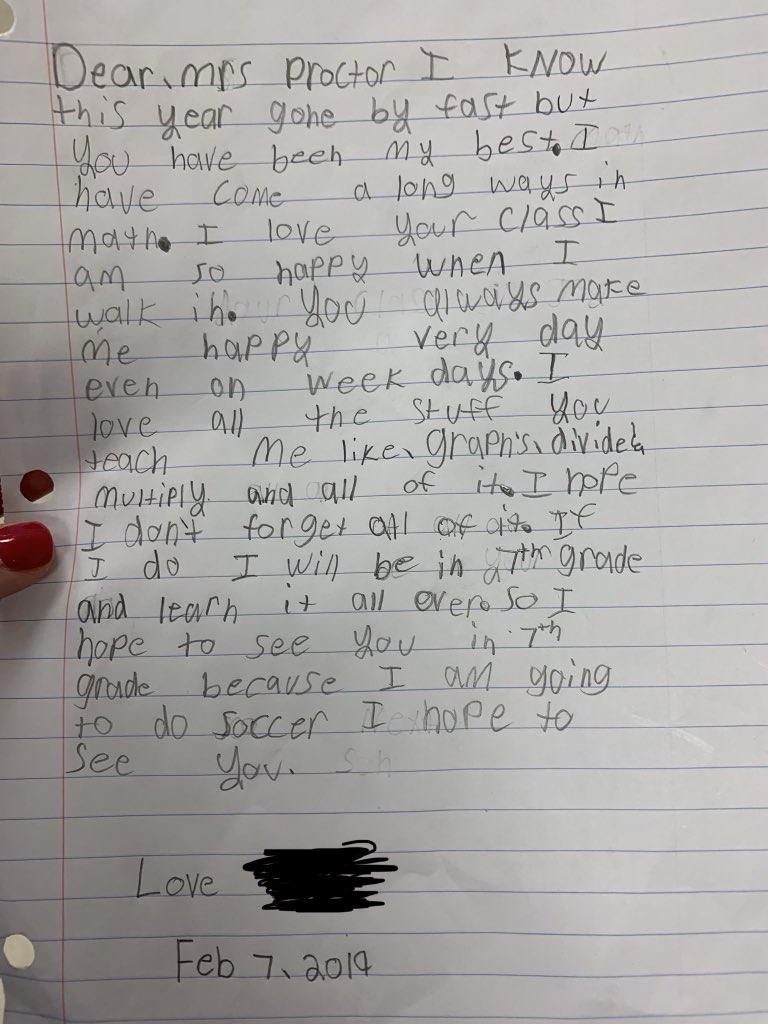 Dear, mrs proctor I KNOW
this year gone by fast but
you have been my best. I
have come a long ways in
math. I love your class I
am so happy when I
walk in. you always make
me happy very day
even on week days. I
love all the stuff you
teach me like, graph's, divide,
multiply and all of it. I hope
I don't forget all of it. If
I do I will be in 7th grade
and learn it all over. so I
hope to see you in 7th
grade because I am going
to do soccer I hope to
see you.
Love
Feb 7, 2019